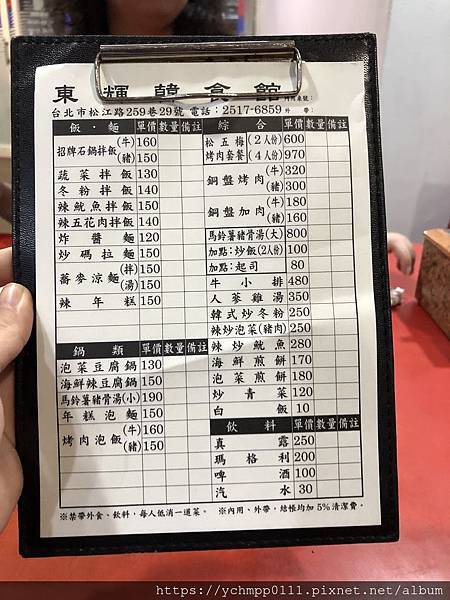 東輝韓食館 內用桌號：
台北市松江路259巷29號 電話：2517-6859 外 帶：
飯．麵 單價 數量 備註
招牌石鍋拌飯 (牛) 160
(豬) 150
蔬菜拌飯 130
冬粉拌飯 140
辣魷魚拌飯 150
辣五花肉拌飯 140
炸醬麵 120
炒碼拉麵 150
蕎麥涼麵 (拌) 150
(湯) 150
辣年糕 150
鍋類 單價 數量 備註
泡菜豆腐鍋 130
海鮮辣豆腐鍋 150
馬鈴薯豬骨湯(小) 190
年糕泡麵 150
烤肉泡飯 (牛) 160
(豬) 150
綜合 單價 數量 備註
松五梅烤肉套餐 (2人份) 600
(4人份) 970
銅盤烤肉 (牛) 320
(豬) 300
銅盤加肉 (牛) 180
(豬) 160
馬鈴薯豬骨湯(大) 800
加點：炒飯(2人份) 100
加點：起司 80
牛小排 480
人蔘雞湯 350
韓式炒冬粉 250
辣炒泡菜(豬肉) 250
辣炒魷魚 280
海鮮煎餅 170
泡菜煎餅 180
炒青菜 120
白飯 10
飲料 單價 數量 備註
真露 250
瑪格利 200
啤酒 100
汽水 30
※禁帶外食、飲料，每人低消一道菜。 ※內用、外帶，結帳均加5%清潔費。
https://ychmpp0111.pixnet.net/album